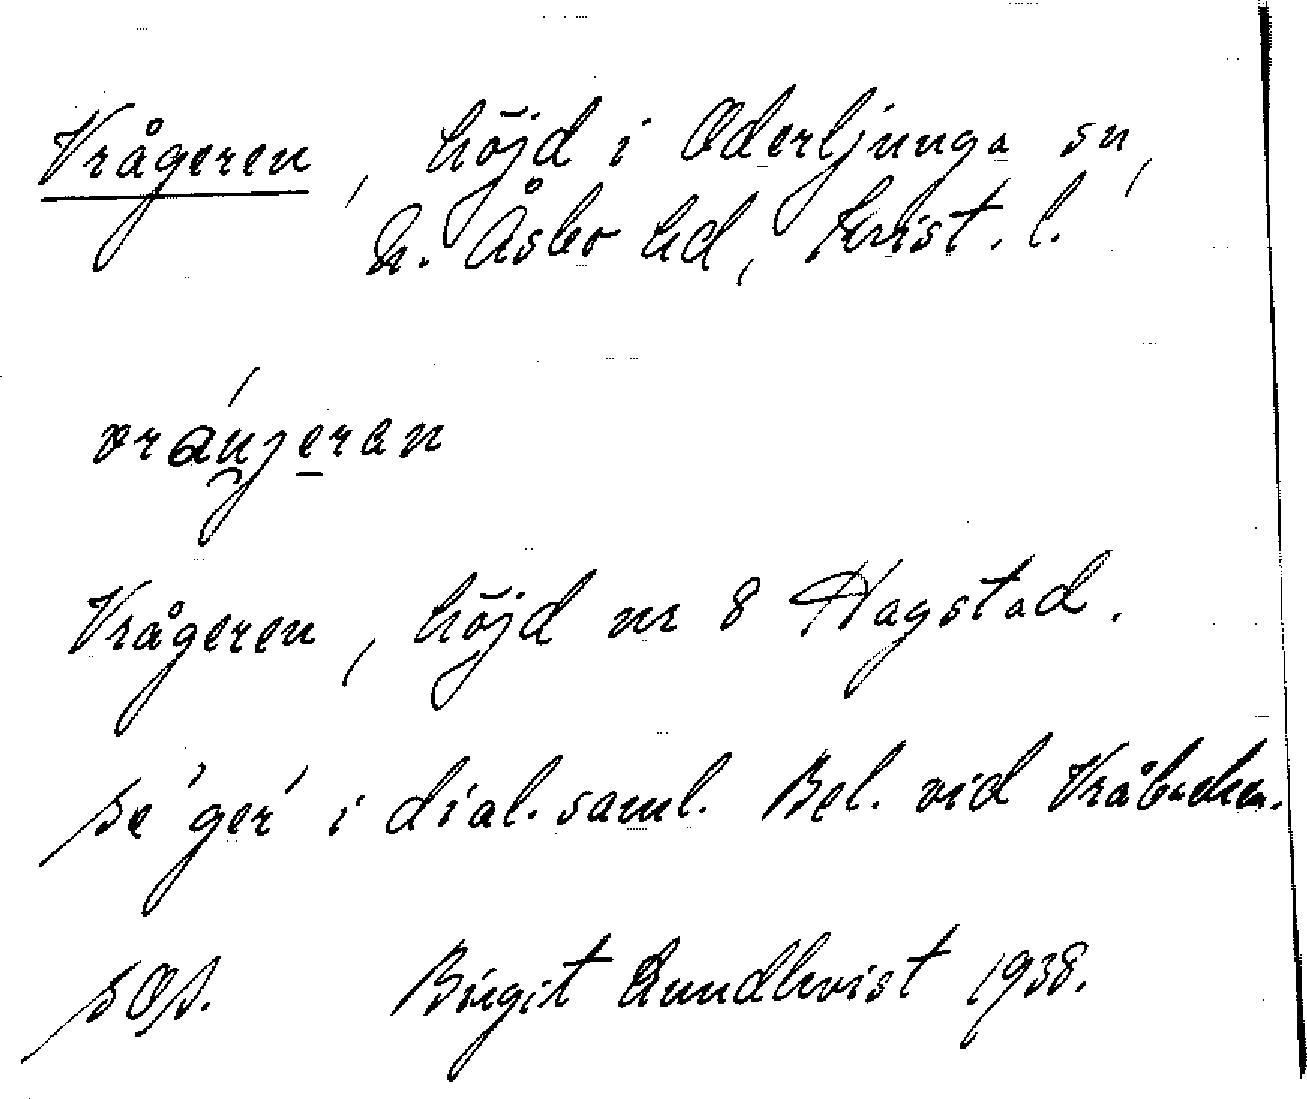 Vrågeren, höjd i Oderljunga sn,
N. Åsbo hd, Krist. l.
Vrågeren, höjd nr 8 Hagstad.
Se 'ger' i dial. saml. Bel. vid Vråbacken.
Birgit Lundkvist 1938.